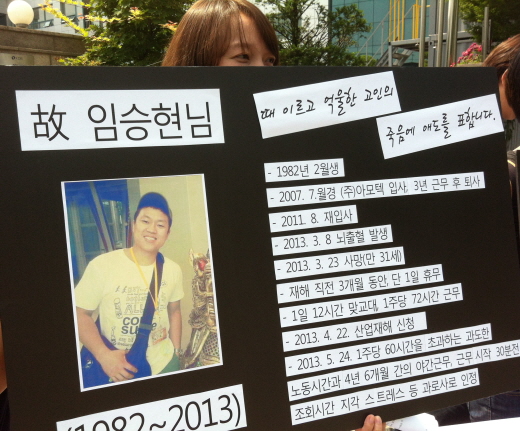 故 임승현님
때 이르고 억울한 고인의
죽음에 애도를 표합니다.
- 1982년 2월생
- 2007. 7.월경 (주)아모텍 입사, 3년 근무 후 퇴사
- 2011. 8. 재입사
- 2013. 3. 8 뇌출혈 발생
- 2013. 3. 23 사망(만 31세)
- 재해 직전 3개월 동안, 단 1일 휴무
- 1일 12시간 맞교대, 1주당 72시간 근무
- 2013. 4. 22. 산업재해 신청
- 2013. 5. 24. 1주당 60시간을 초과하는 과도한
노동시간과 4년 6개월 간의 야간근무, 근무 시작 30분전
조회시간 지각 스트레스 등 과로사로 인정
(1982~2013)